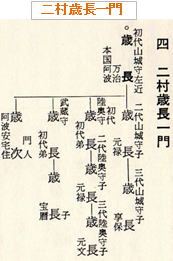 二村歳長一門
四 二村歳長一門
初代山城守左近
歳長
万治
本国阿波
二代山城守子
歳長
元禄
三代山城守子
歳長
享保
陸奥守
初代
歳長
二代陸奥守子
歳長
元禄
三代陸奥守子
歳長
元文
武蔵守
初代弟
歳長
子
歳長
宝暦
門
歳次
人
阿波安宅住